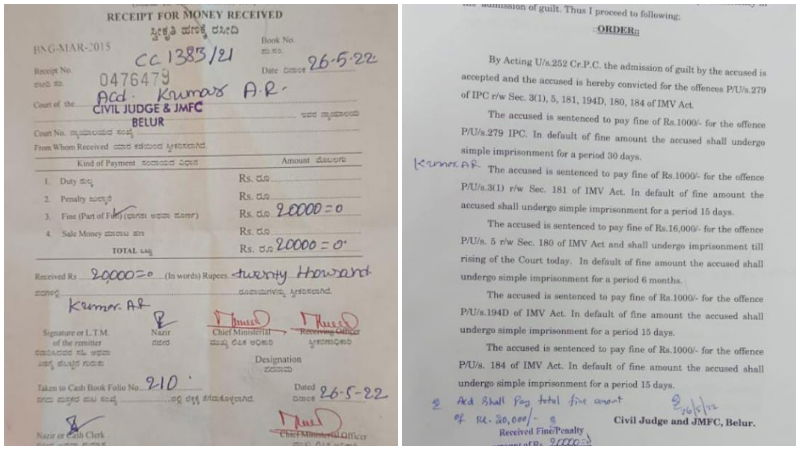 RECEIPT FOR MONEY RECEIVED
ಸ್ವೀಕೃತಿ ಹಣಕ್ಕೆ ರಸೀದಿ
BNG-MAR-2015
CC 1383/21
Book No.
Receipt No.
0476479
Date ದಿನಾಂಕ 26-5-22
Acd. Kumar A.R.
Court of the
CIVIL JUDGE & JMFC
BELUR
ಇವರ ನ್ಯಾಯಾಲಯ
Court No. ನ್ಯಾಯಾಲಯದ ಸಂಖ್ಯೆ
From Whom Received ಯಾರ ಕಡೆಯಿಂದ ಸ್ವೀಕರಿಸಲಾಗಿದೆ.
Kind of Payment ಸಂದಾಯದ ವಿಧಾನ
Amount ಮೊಬಲಗು
1. Duty ಸುಲ್ಕ Rs. ರೂ
2. Penalty ಜುಲ್ಮಾನೆ Rs. ರೂ
3. Fine (Part of Full) (ಭಾಗಶಃ ಅಥವಾ ಪೂರ್ಣ) Rs. ರೂ 20000=0
4. Sale Money ಮಾರಾಟ ಹಣ Rs. ರೂ
TOTAL ಒಟ್ಟು Rs. ರೂ 20000=0
Received Rs 20,000=0 (In words) Rupees twenty thousand
ರೂಪಾಯಿಗಳನ್ನು ಸ್ವೀಕರಿಸಲಾಗಿದೆ.
Kumar.AR
Signature or L.T.M.
of the remitter
Nazir
ನಜೀರ
Chief Ministerial
Receiving Officer
Designation
ಪದನಾಮ
Taken to Cash Book Folio No 210
Dated
ದಿನಾಂಕ 26-5-22
Nazir or Cash Clerk
Chief Ministerial Officer
the admission of guilt. Thus I proceed to following;
::ORDER::
By Acting U/s.252 Cr.P.C. the admission of guilt by the accused is
accepted and the accused is hereby convicted for the offences P/U/s.279
of IPC r/w Sec. 3(1), 5, 181, 194D, 180, 184 of IMV Act.
The accused is sentenced to pay fine of Rs.1000/- for the offence
P/U/s.279 IPC. In default of fine amount the accused shall undergo
simple imprisonment for a period 30 days.
Kumar.AR
The accused is sentenced to pay fine of Rs.1000/- for the offence
P/U/s.3(1) r/w Sec. 181 of IMV Act. In default of fine amount the
accused shall undergo simple imprisonment for a period 15 days.
The accused is sentenced to pay fine of Rs.16,000/- for the offence
P/U/s. 5 r/w Sec. 180 of IMV Act and shall undergo imprisonment till
rising of the Court today. In default of fine amount the accused shall
undergo simple imprisonment for a period 6 months.
The accused is sentenced to pay fine of Rs.1000/- for the offence
P/U/s.194D of IMV Act. In default of fine amount the accused shall
undergo simple imprisonment for a period 15 days.
The accused is sentenced to pay fine of Rs.1000/- for the offence
P/U/s. 184 of IMV Act. In default of fine amount the accused shall
undergo simple imprisonment for a period 15 days.
Acd Shall Pay total fine amount
of Rs. 20,000/-
26/5/22
Civil Judge and JMFC, Belur.
Received Fine/Penalty
amount of Rs. 20000=0